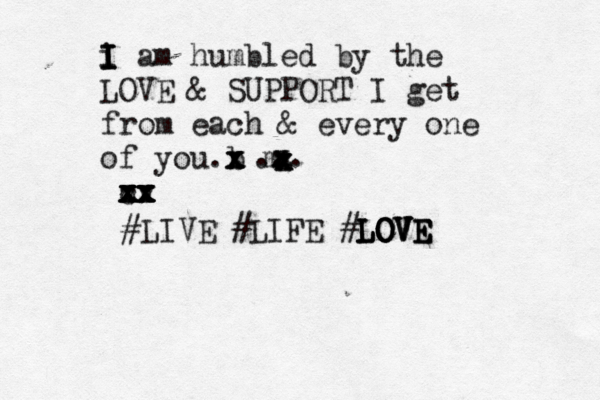 I am humbled by the
LOVE & SUPPORT I get
from each & every one
of you.
xx
#LIVE #LIFE #LOVE